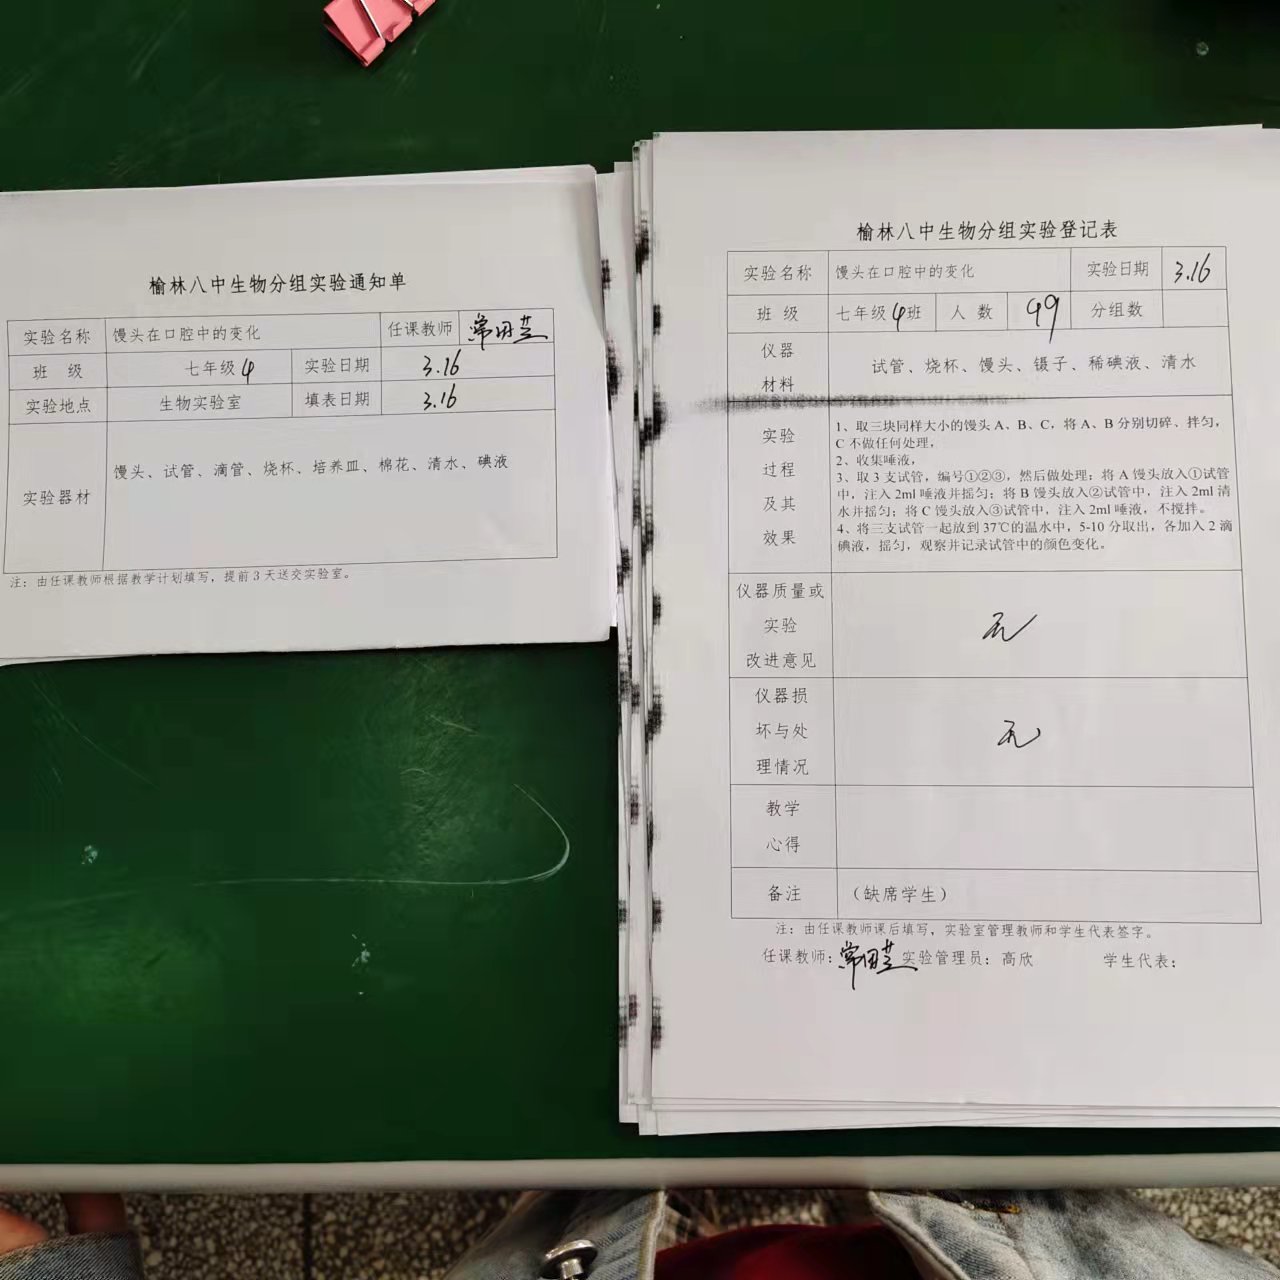 榆林八中生物分组实验通知单
实验名称 馒头在口腔中的变化 任课教师
班 级 七年级4 实验日期 3.16
实验地点 生物实验室 填表日期 3.16
实验器材 馒头、试管、滴管、烧杯、培养皿、棉花、清水、碘液
注：由任课教师根据教学计划填写，提前3天送交实验室。
榆林八中生物分组实验登记表
实验名称 馒头在口腔中的变化 实验日期 3.16
班 级 七年级4班 人 数 49 分组数
仪器
材料
试管、烧杯、馒头、镊子、稀碘液、清水
实验
过程
及其
效果
1、取三块同样大小的馒头A、B、C，将A、B分别切碎、拌匀，
C不做任何处理，
2、收集唾液，
3、取3支试管，编号①②③，然后做处理：将A馒头放入①试管
中，注入2ml唾液并摇匀；将B馒头放入②试管中，注入2ml清
水并摇匀；将C馒头放入③试管中，注入2ml唾液，不搅拌。
4、将三支试管一起放到37℃的温水中，5-10分取出，各加入2滴
碘液，摇匀，观察并记录试管中的颜色变化。
仪器质量或
实验
改进意见
无
仪器损
坏与处
理情况
无
教学
心得
备注 （缺席学生）
注：由任课教师课后填写，实验室管理教师和学生代表签字。
任课教师： 实验管理员：高欣 学生代表：